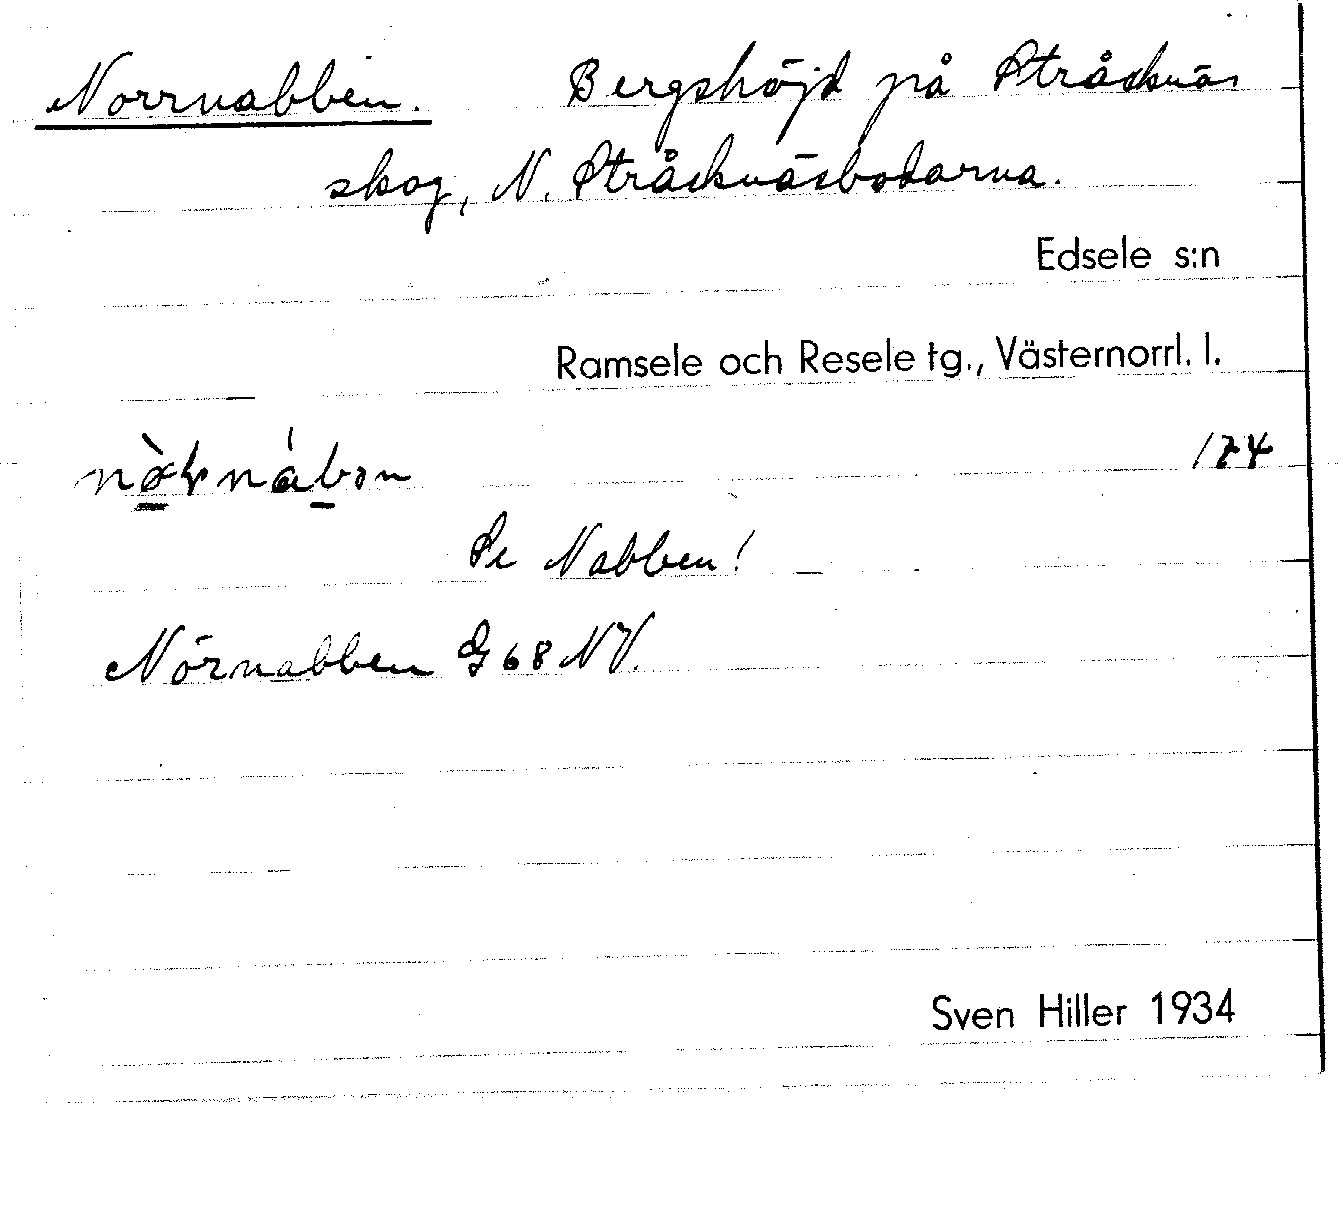 Norrnabben. Bergshöjd på Stråcknäs
skog, N. Stråcknäsbodarna.
Edsele s:n
Ramsele och Resele tg., Västernorrl. l.
174
Se Nabben!
Nörnabben G 68 NV.
Sven Hiller 1934